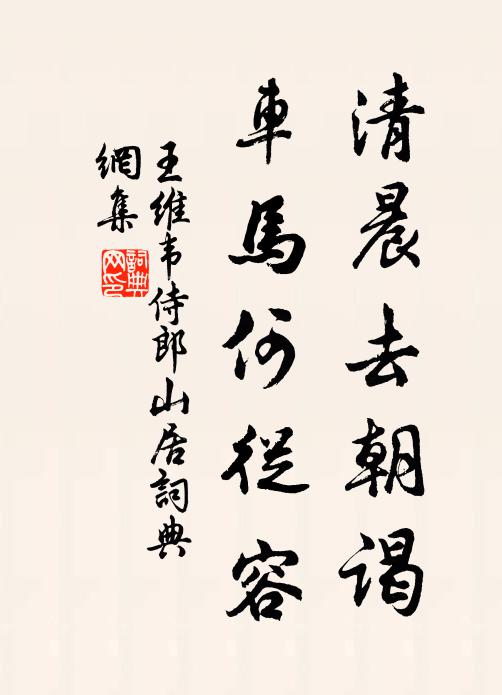 清晨去朝謁
車馬何從容
王維韦侍郎山居詞典
網集
詞典
网印